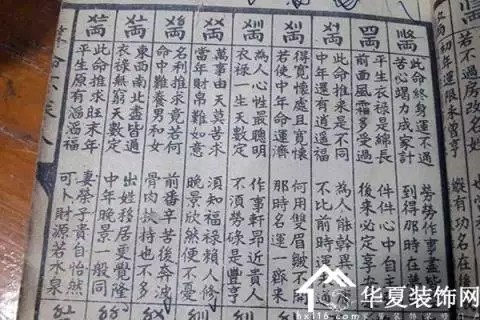 若不過房改名姓
初年運限未曾亨 縱有功名在後
此命終身運不通 勞勞作事盡
苦心竭力成家計 到得那時在
平生衣祿是綿長 件件心中自
前面風霜多受過 後來必定享
此命推來是不同 為人能幹異
中年還有逍遙福 不比前時運
得寬懷處且寬懷 何用雙眉皺不開
若使中年命運濟 那時名運一齊來
為人心性最聰明 作事軒昂近貴人
衣祿一生天數定 不須勞碌是豐亨
萬事由天莫苦求 須知福祿賴人修
當年財帛難如意 晚景欣然便不憂
名利推求竟若何 前番辛苦後奔波
命中難養男和女 骨肉扶持也不多
東西南北盡皆通 出姓移居更覺隆
衣祿無窮天數定 中年晚景一般同
此命推求旺末年 妻榮子貴自怡然
平生原有滔滔福 可卜財源若水泉
华夏装饰网